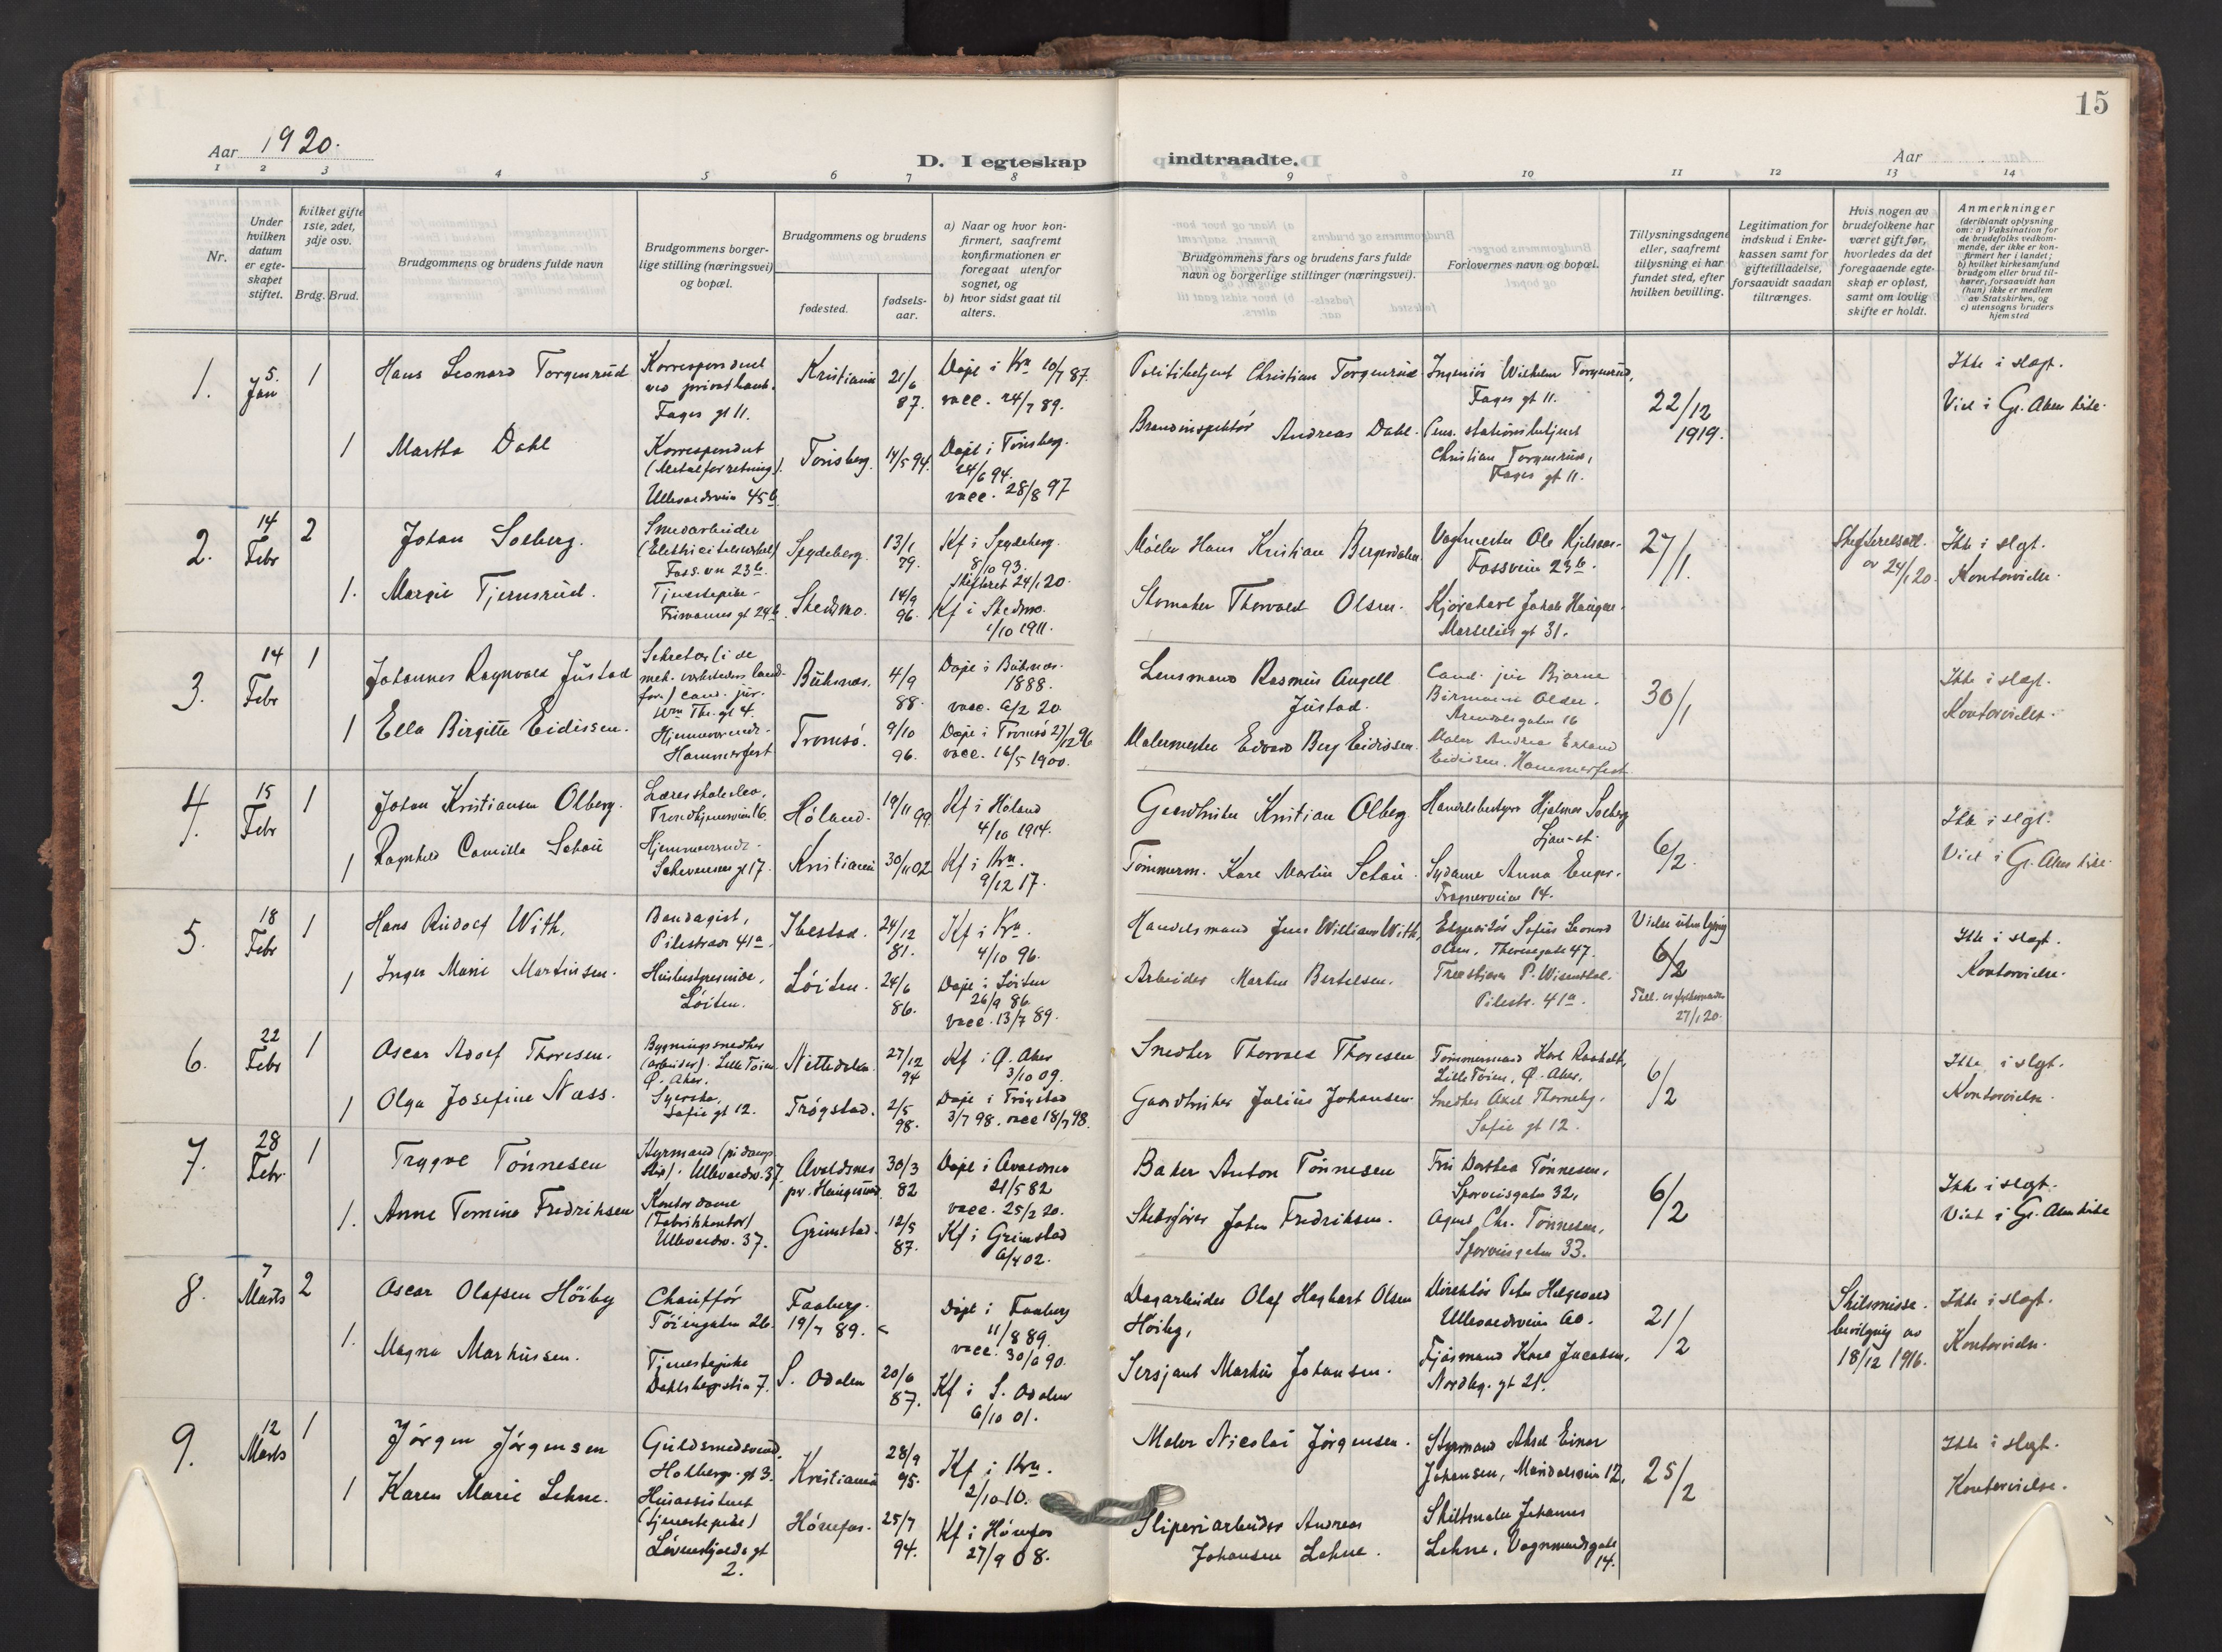 15
Aar 1920.
D. I egteskap indtraadte.
Aar
1 2 3 4 5 6 7 8 9 10 11 12 13 14
Nr.
Under
hvilken
datum
er egte-
skapet
stiftet.
hvilket gifte
1ste, 2det,
3dje osv.
Brdg. Brud.
Brudgommens og brudens fulde navn
Brudgommens borger-
lige stilling (næringsvei)
og bopæl.
Brudgommens og brudens
fødested.
fødsels-
aar.
a) Naar og hvor kon-
firmert, saafremt
konfirmationen er
foregaat utenfor
sognet, og
b) hvor sidst gaat til
alters.
Brudgommens fars og brudens fars fulde
navn og borgerlige stillinger (næringsvei).
Forlovernes navn og bopæl.
Tillysningsdagene
eller, saafremt
tillysning ei har
fundet sted, efter
hvilken bevilling.
Legitimation for
indskud i Enke-
kassen samt for
giftetilladelse,
forsaavidt saadan
tiltrænges.
Hvis nogen av
brudefolkene har
været gift før,
hvorledes da det
foregaaende egte-
skap er opløst,
samt om lovlig
skifte er holdt.
Anmerkninger
(deriblandt oplysning
om: a) Vaksination for
de brudefolks vedkom-
mende, der ikke er kon-
firmert her i landet;
b) hvilket kirkesamfund
brudgom eller brud til-
hører, forsaavidt han
(hun) ikke er medlem
av Statskirken, og
c) utensogns bruders
hjemsted
1.
5.
Jan
1
Hans Leonard Torgenrud
Korrespondent
ved privat bank.
Fages gt 11.
Kristiania
21/6
87.
Døpt i Kra 10/7 87.
vacc. 24/7 89.
Politibetjent Christian Torgenrud
Ingeniør Wilhelm Torgenrud,
Fages gt 11.
22/12
1919.
Ikke i slegt.
Viet i Gl. Aker kirke.
1
Martha Dahl
Korrespondent
(Metalforretning).
Ullevaalsveien 45b
Tønsberg.
14/5 94.
Døpt i Tønsberg.
24/6 94.
vacc. 28/8 97
Brandinspektør Andreas Dahl.
Pens. stationsbetjent
Christian Torgenrud,
Fages gt 11.
2.
14
Febr
2
Johan Solberg.
Smedarbeider
(Elektricitetsverket)
Foss.vn 23b.
Spydeberg.
13/1
79.
Kf i Spydeberg.
8/10 93.
skiftaret 24/1 20.
Møller Hans Kristian Bergersdalen
Vagtmester Ole Kjelsaas-
Fossveien 23b.
27/1.
av 24/1 20.
Ikke i slegt.
Kontorvielse.
1.
Margit Tjernsrud.
Tjenestepike.
Frimannsgt 24b.
Skedsmo.
14/9
96.
Kf i Skedsmo.
1/10 1911.
Skomaker Thorvald Olsen.
Kjørekarl Jakob Haugen.
Marselies gt 31.
3.
14
Febr
1
Johannes Ragnvald Justad
Sekretær i de
mek. verksteders lands-
for.) cand. jur.
Wm Thr. gt 4.
Buksnes.
4/9
88.
Døpt i Buksnes.
1888.
vacc. 6/2 20.
Lensmand Rasmus Angell
Justad.
Cand. jur Bjarne
Birmann Olden.
Arendalsgaten 16
30/1
Ikke i slegt.
Kontorvielse.
1
Ella Birgitte Eidissen.
Hjemmeværende.
Hammerfest
Tromsø.
9/10
96.
Døpt i Tromsø 27/12 96
vacc. 16/5 1900.
Malermester Edvard Berg Eidissen.
Eidissen. Hammerfest
4.
15
Febr
1
Johan Kristiansen Olberg.
Lærerskoleelev,
Trondhjemsveien 16.
Høland.
19/11 99
Kf i Høland
4/10 1914.
Gaardbruker Kristian Olberg.
Handelsbestyrer Hjalmar Solberg
Ljan st.
6/2.
Ikke i slegt.
Viet i Gl. Aker kirke.
1
Ragnhild Camilla Schøie
Hjemmeværende.
Schwensens gt 17.
Kristiania
30/11 02
Kf i Kra.
9/12 17.
Tømmerm. Kare Martin Schøie.
Sydame Anna Enger.
Frognerveien 14.
5.
18
Febr
1
Hans Rudolf With.
Bandagist,
Pilestræde 41a.
Ibestad.
24/12
81.
Kf i Kra.
4/10 96.
Handelsmand Jens William With,
Ekspeditør Sofus Leonard
Olsen, Theresegate 47.
6/2
27/1 20.
Ikke i slegt.
Kontorvielse.
1
Inger Marie Martinsen.
Husbestyrerinde,
Løiten.
Løiten.
24/6
86.
Døpt i Løiten
26/9 86.
vacc. 13/7 89.
Arbeider Martin Bertelsen.
Pilestr. 41a.
6.
22
Febr
1
Oscar Adolf Thoresen.
Bygningssnedker
(arbeider). Lille Tøien
Ø. Aker.
Nittedalen.
27/12
94
Kf i Ø. Aker
3/10 09.
Snedker Thorvald Thoresen
Tømmermand Karl Raaholt,
Lille Tøien, Ø. Aker.
6/2
Ikke i slegt.
Kontorvielse.
1
Olga Josefine Næss.
Syerske,
Sofie gt 12.
Trøgstad.
2/5
98.
Døpt i Trøgstad
3/7 98. vacc 18/7 98.
Gaardbruker Julius Johansen.
Snedker Axel Thorneby.
Sofie gt 12.
7.
28
Febr.
1
Trygve Tønnesen
Styrmand (pi damp
skip). Ullevaalsv. 37.
Avaldsnes
pr. Haugesund.
30/3
82
Døpt i Avaldsnes
21/5 82
vacc. 25/2 20.
Baker Anton Tønnesen
Fru Dorthea Tønnesen,
Sporveisgaten 32,
6/2
Ikke i slegt.
Viet i Gl. Aker kirke
1.
Anne Tomine Fredriksen
Kontordame
(Fabrikkontor)
Ullevaalsv. 37.
Grimstad.
12/5
87.
Kf i Grimstad
6/4 02.
Skibsfører Johan Fredriksen.
Agent Chr. Tønnesen,
Sporveisgaten 33.
8.
7
Marts
2
Oscar Olafsen Høiby
Chauffør
Tøiengaten 26.
Faaberg.
19/7 89.
Døpt i Faaberg
11/8 89.
vacc. 30/6 90.
Dagarbeider Olaf Hagbart Olsen
Høiby,
Direktør Peter Helgevold
Ullevaalsveien 60.
21/2
Skilsmisse.
bevilgning av
18/12 1916.
Ikke i slegt.
Kontorvielse.
1.
Magna Markussen.
Tjenestepike
Dahlsbergstien 7.
S. Odalen
20/6
87.
Kf i S. Odalen
6/10 01.
Sersjant Markus Johansen.
Fjøsmand Karl Jacobsen,
Nordbg. gt 21.
9.
12
Marts
1
Jørgen Jørgensen
Guldsmedsvend,
Holbergs gt 3.
Kristiania
28/9
95.
Kf i Kra.
2/10 10.
Maler Nicolai Jørgensen.
Styrmand Aksel Einar
Johansen, Maridalsveien 12.
25/2
Ikke i slegt.
Kontorvielse.
1
Karen Marie Lehne.
Husassistent
(tjenestepike)
Løvenskjolds gt
2.
Hønefos.
25/7
94.
Kf i Hønefos
27/9 08.
Sliperiarbeider Andreas
Johansen Lehne.
Skiltmaler Johannes
Lehne, Vognmandsgate
14.